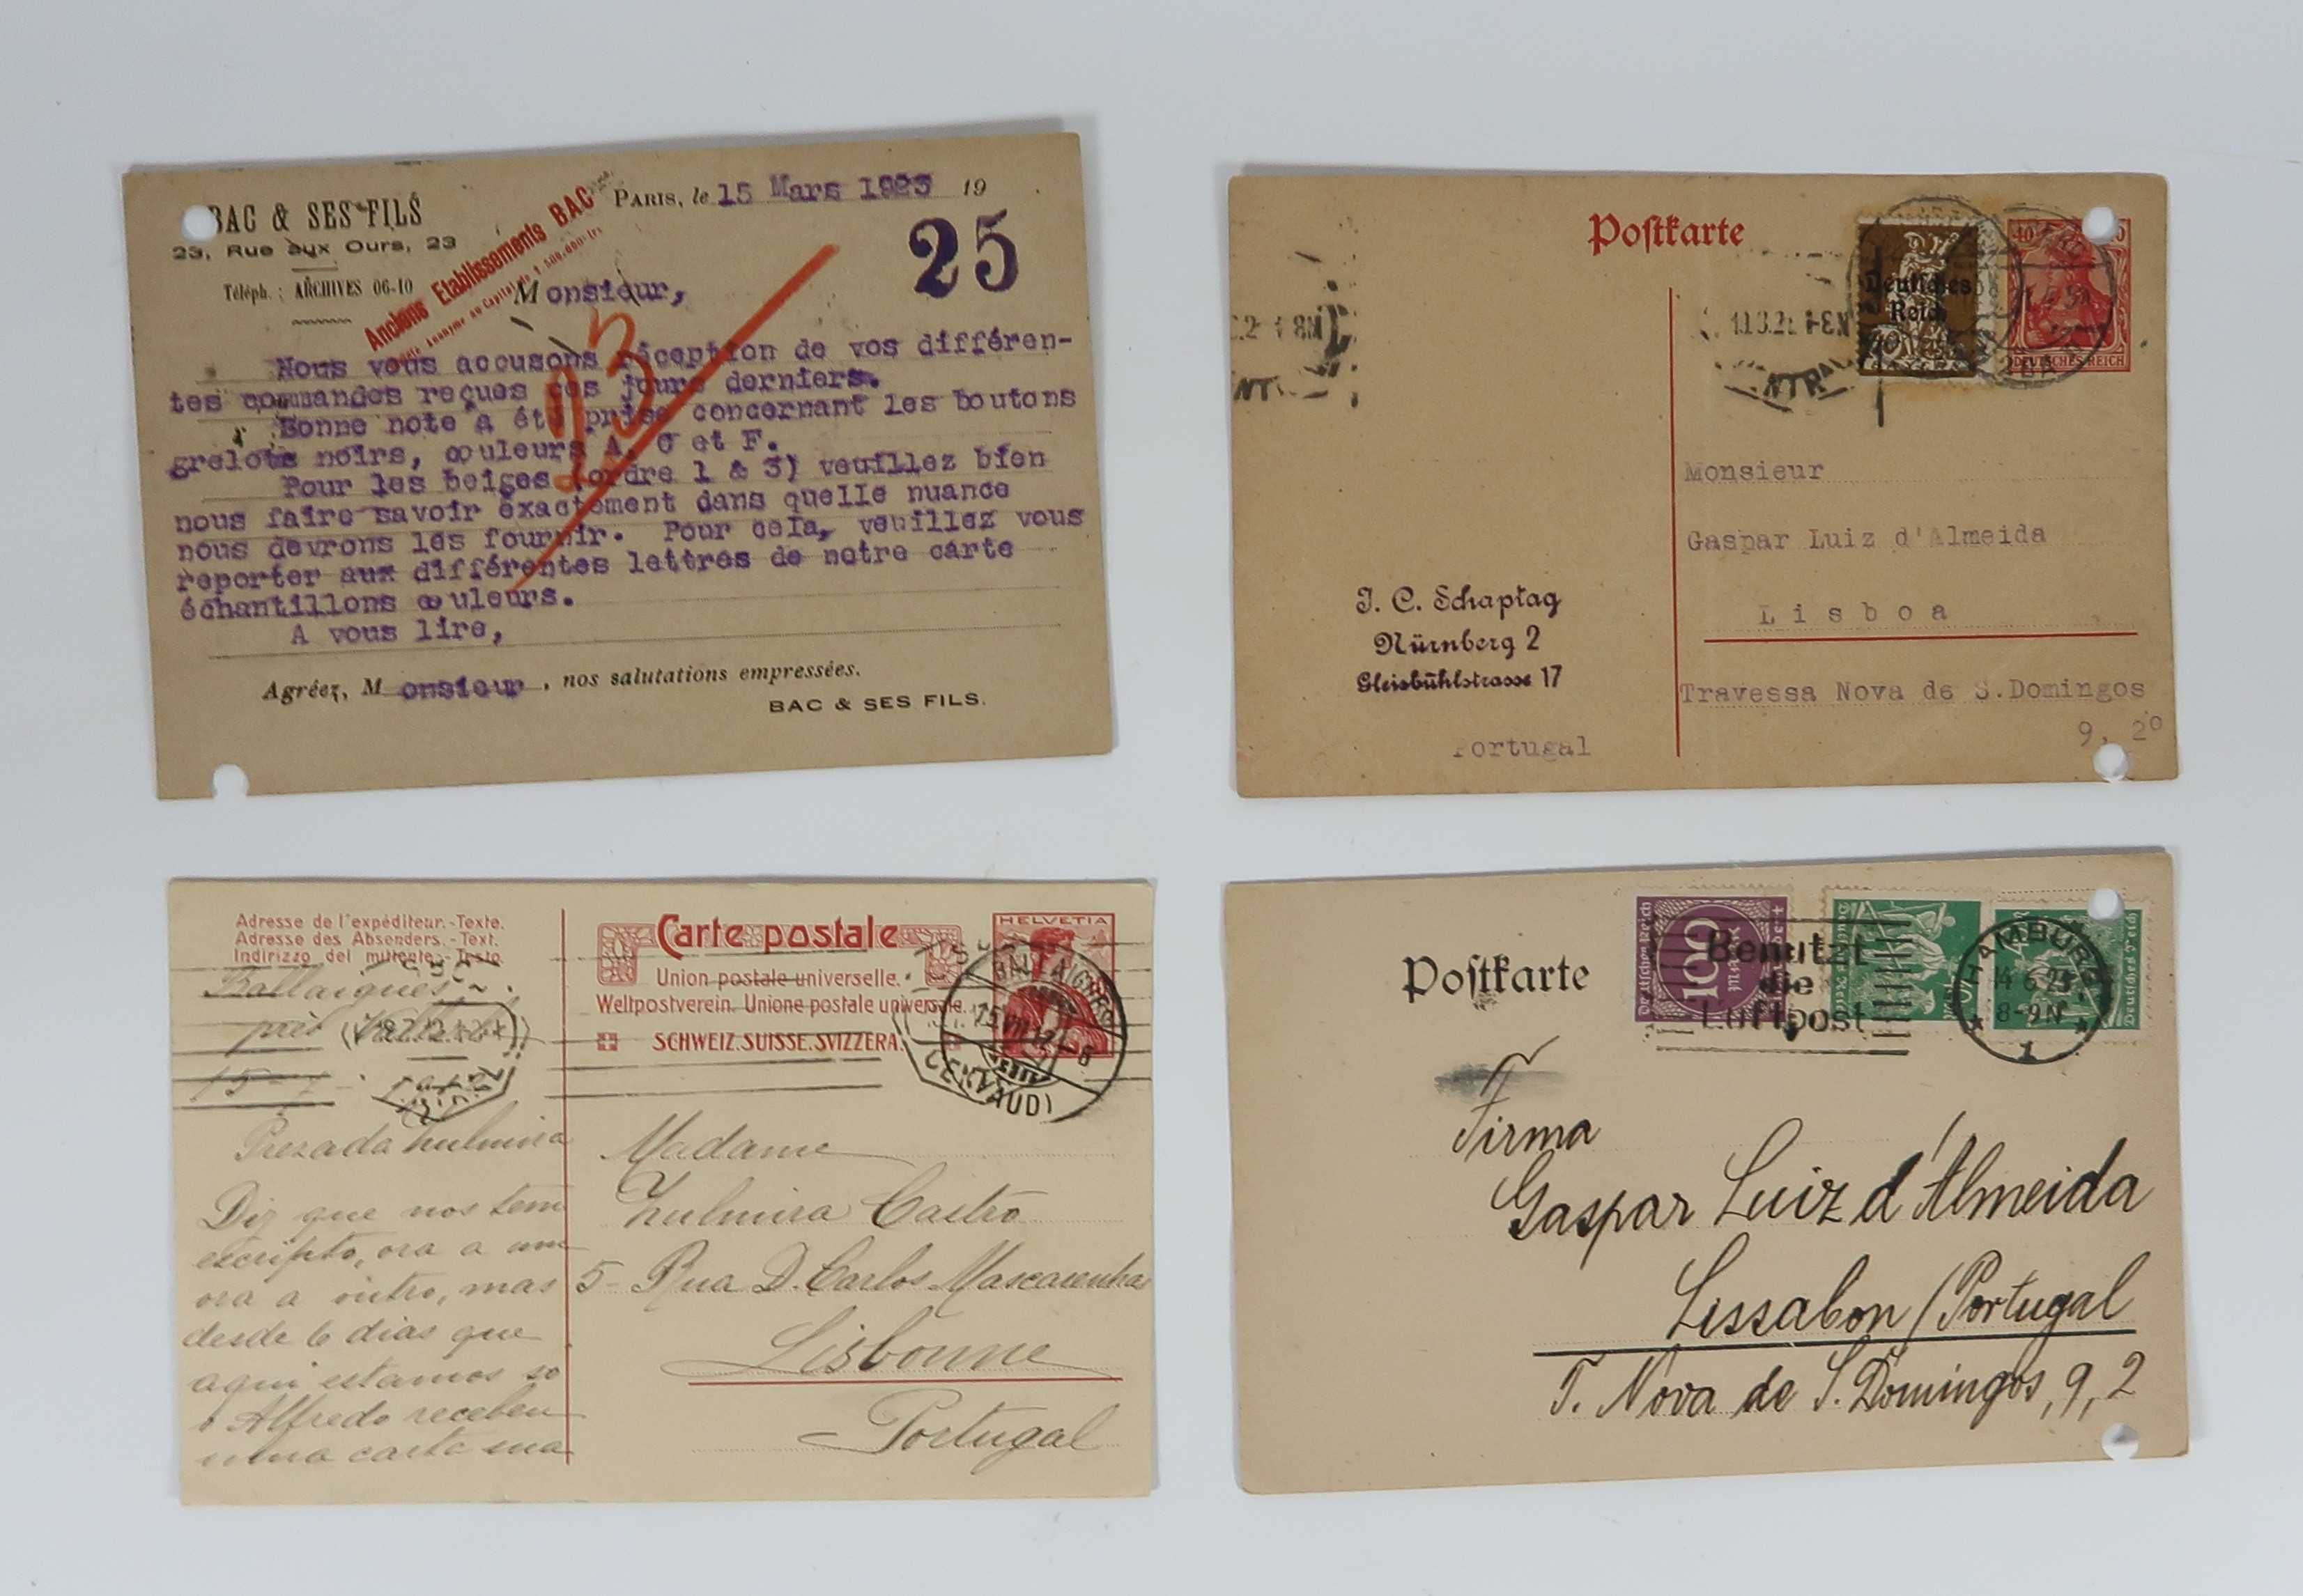 BAC & SES FILS
23, Rue aux Ours, 23
Téléph.: ARCHIVES 06-10
Anciens Etablissements BAC
PARIS, le 15 Mars 1923 19
25
Monsieur,
23
Nous vous accusons réception de vos différen-
tes commandes reçues ces jours derniers.
Bonne note a été prise concernant les boutons
grelots noirs, couleurs A, C et F.
Pour les beiges (ordre 1 & 3) veuillez bien
nous faire savoir exactement dans quelle nuance
nous devrons les fournir. Pour cela, veuillez vous
reporter aux différentes lettres de notre carte
échantillons couleurs.
A vous lire,
Agréez, Monsieur, nos salutations empressées.
BAC & SES FILS.
Postkarte
Deutsches
Reich
40
DEUTSCHES REICH
Monsieur
Gaspar Luiz d'Almeida
Lisboa
Travessa Nova de S.Domingos
9, 2º
J. C. Schaptag
Nürnberg 2
Gleisbühlstrasse 17
Portugal
Adresse de l'expéditeur.-Texte.
Adresse des Absenders.-Text.
Indirizzo del mittente.-Testo.
Ballaigues
près
15-7
Carte postale
Union postale universelle.
Weltpostverein. Unione postale universale.
SCHWEIZ.SUISSE.SVIZZERA.
HELVETIA
BALLAIGUES
15.VII.12.-6
(VAUD)
Prezada Zulmira
Diz que nos tem
escripto, ora a um
ora a outro, mas
desde 6 dias que
aqui estamos só
o Alfredo recebeu
uma carta sua
Madame
Zulmira Castro
5- Rua D. Carlos Mascarenhas
Lisbonne
Portugal
Postkarte
Deutsches Reich
100
Mark
Benutzt
die
Luftpost
HAMBURG
14.6.23
8-9N
1
Deutsches Reich
Firma
Gaspar Luiz d'Almeida
Lissabon/Portugal
T. Nova de S. Domingos, 9, 2